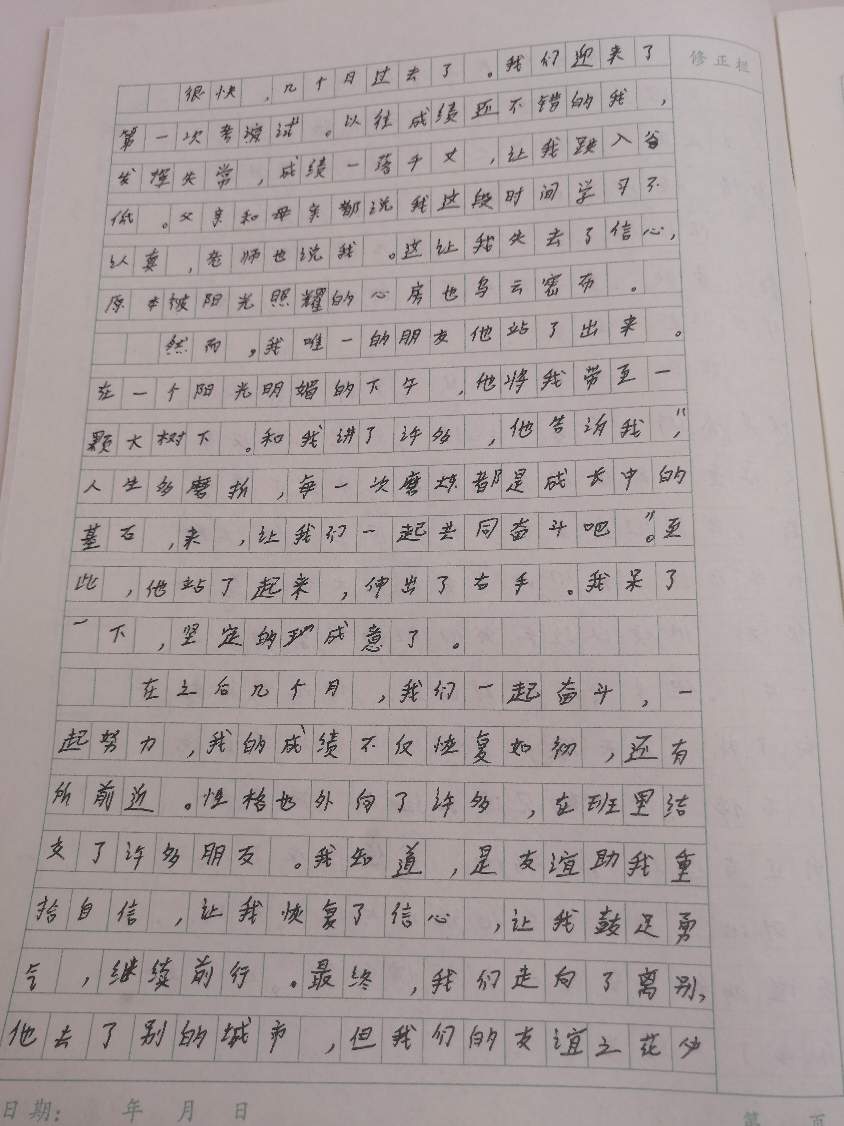 修正栏
很快，几个月过去了。我们迎来了
第一次考试。以往成绩还不错的我，
发挥失常，成绩一落千丈，让我跌入谷
低。父亲和母亲都说我这段时间学习不
认真，老师也说我。这让我失去了信心，
原本被阳光照耀的心房也乌云密布。
然而，我唯一的朋友他站了出来。
在一个阳光明媚的下午，他将我带至一
颗大树下。和我讲了许多，他告诉我，“
人生多磨折，每一次磨炼都是成长中的
基石，来，让我们一起共同奋斗吧”。至
此，他站了起来，伸出了右手。我呆了
一下，坚定的成意了。
在之后几个月，我们一起奋斗，一
起努力，我的成绩不仅恢复如初，还有
所前近。性格也外向了许多，在班里结
交了许多朋友。我知道，是友谊助我重
拾自信，让我恢复了信心，让我鼓足勇
气，继续前行。最终，我们走向了离别，
他去了别的城市，但我们的友谊之花必
日期： 年 月 日
第 页